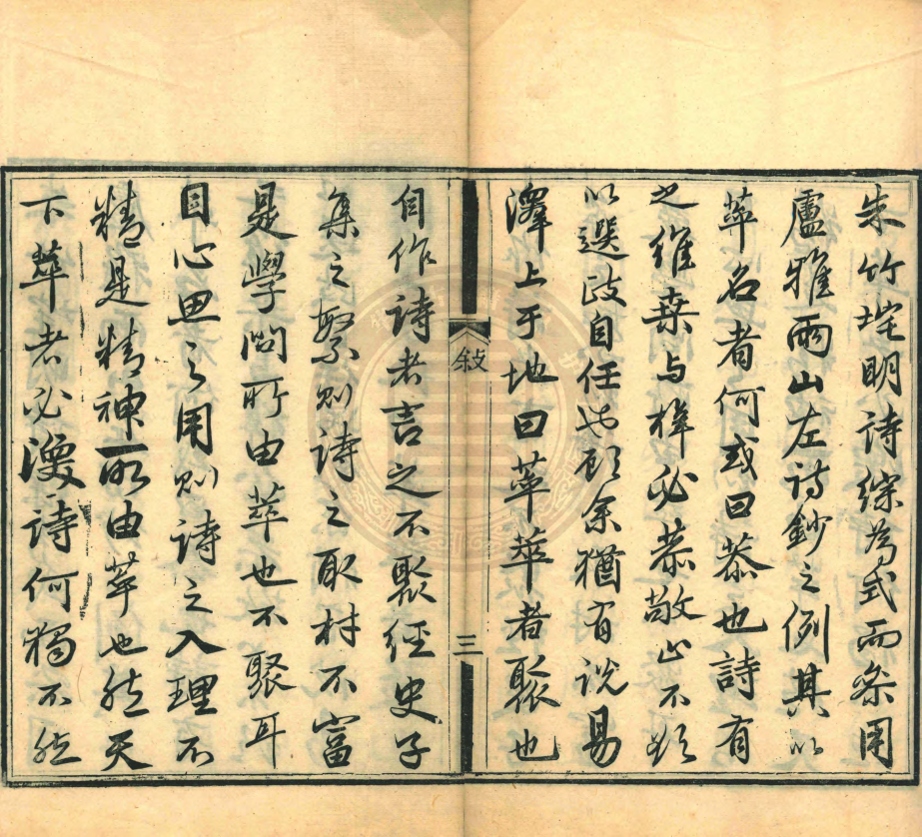 朱竹垞明詩綜為式而參用
盧雅雨山左詩鈔之例其以
萃名者何或曰恭也詩有
之維桑與梓必恭敬止不敢
以選政自任也顧余猶有說易
澤上于地曰萃萃者聚也
敘
三
自作詩者言之不聚經史子
集之繁則詩之取材不富
是學問所由萃也不聚耳
目心思之用則詩之入理不
精是精神所由萃也然天
下萃者必渙詩何獨不然